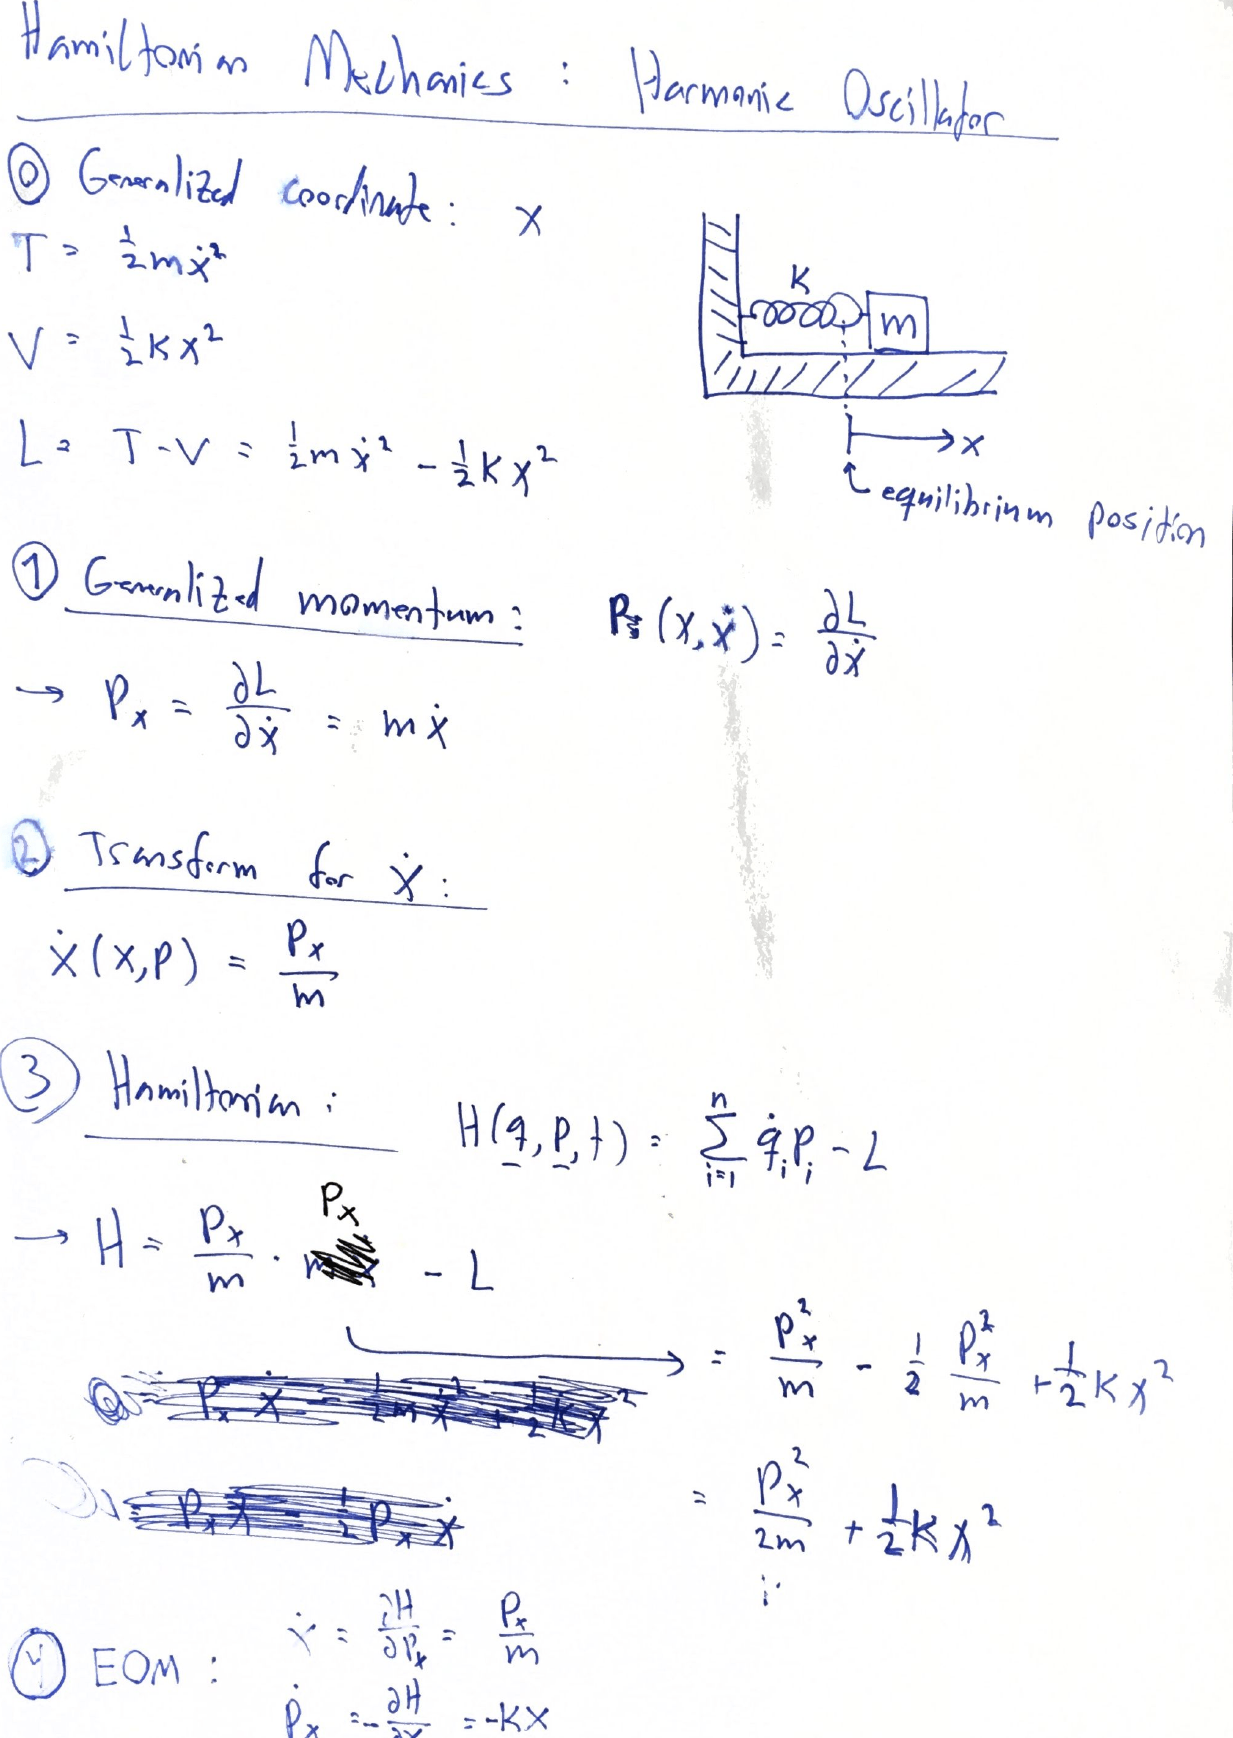 Hamiltonian Mechanics : Harmonic Oscillator
⓪ Generalized coordinate: x
T = ½mẋ²
V = ½Kx²
L = T - V = ½mẋ² - ½Kx²
K
m
x
equilibrium position
① Generalized momentum: P (x,ẋ) = ∂L/∂ẋ
→ Pₓ = ∂L/∂ẋ = mẋ
② Transform for ẋ:
ẋ(x,p) = Pₓ/m
③ Hamiltonian: H(q,p,t) = Σᵢ₌₁ⁿ q̇ᵢPᵢ - L
→ H = Pₓ/m · Pₓ - L
= Pₓ²/m - ½ Pₓ²/m + ½Kx²
= Pₓ²/2m + ½Kx²
④ EOM: ẋ = ∂H/∂Pₓ = Pₓ/m
Ṗₓ = -∂H/∂x = -Kx